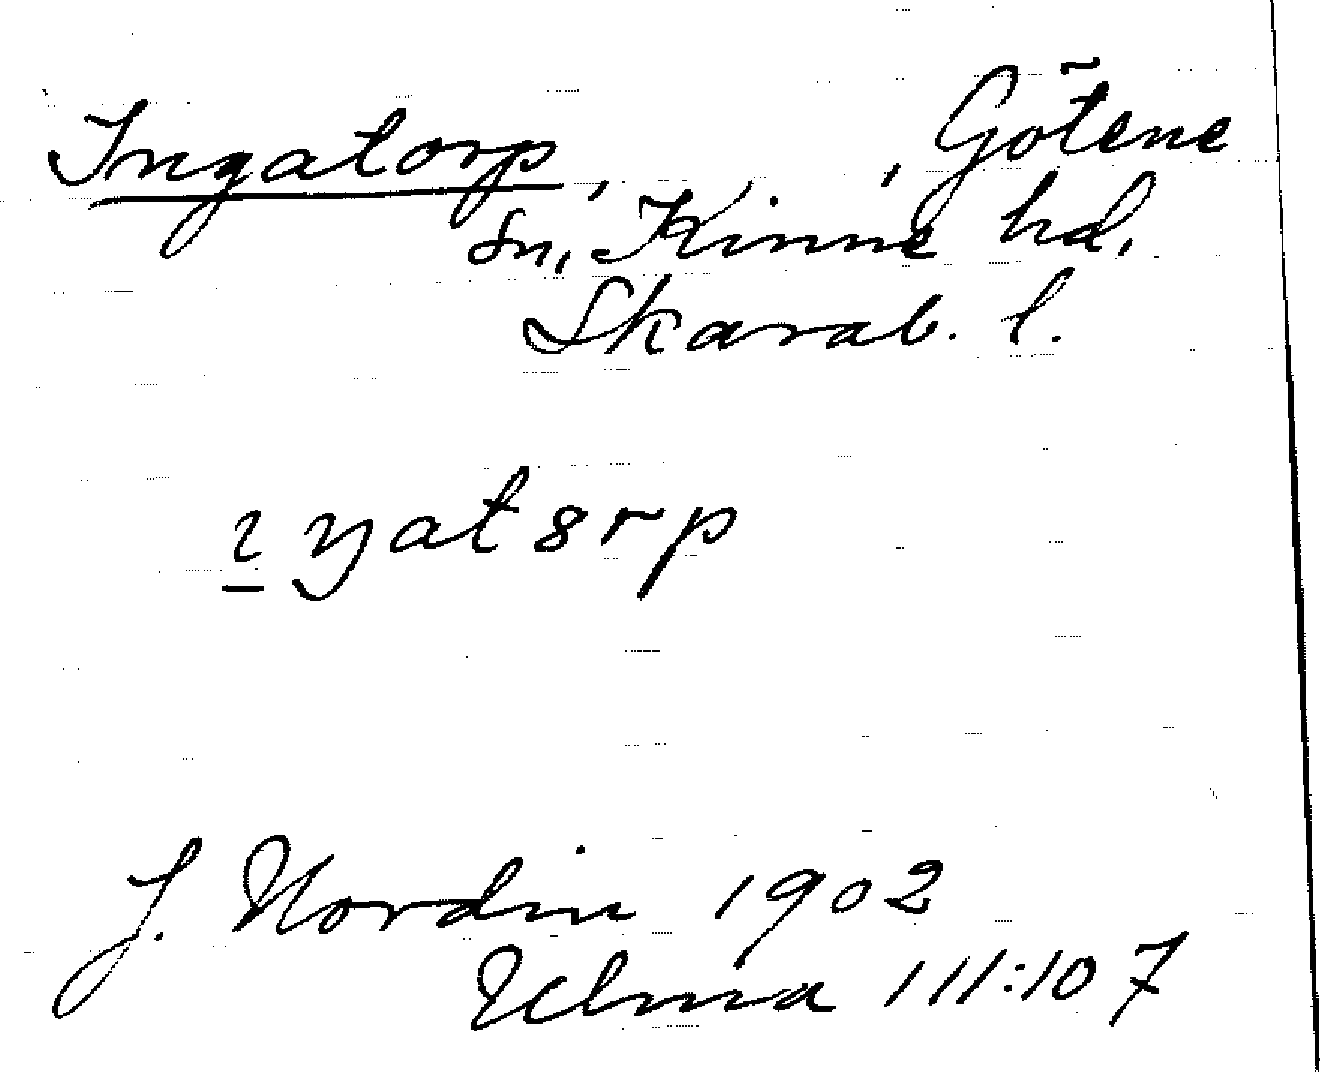 Ingatorp, , Götene
sn, Kinne hd,
Skarab. l.
ı̲ŋatȣrp
J. Nordin 1902
Ulma 111:107